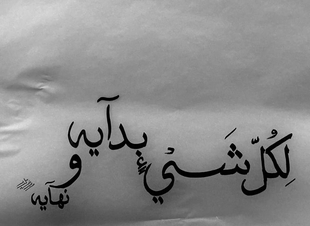 لِكُلِّ شَيْءٍ بِدآيه
و
نهآيه